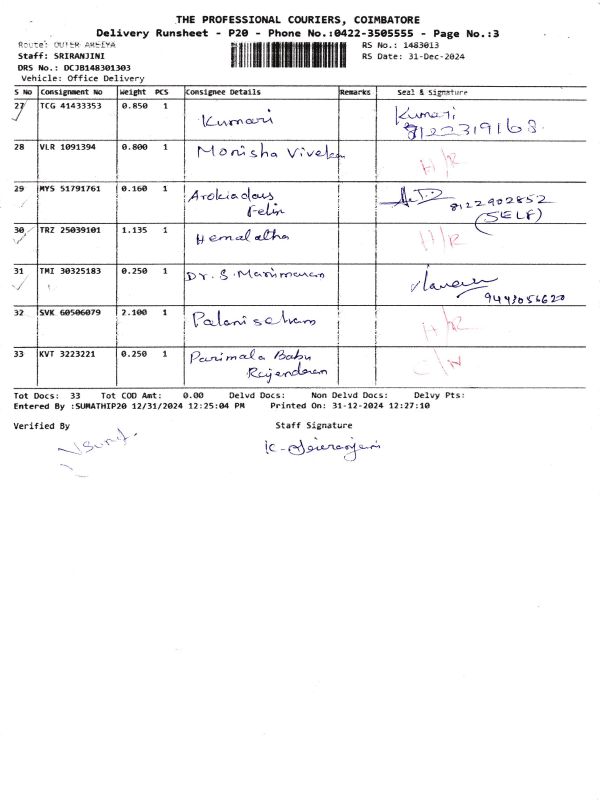 THE PROFESSIONAL COURIERS, COIMBATORE
Delivery Runsheet - P20 - Phone No.:0422-3505555 - Page No.:3
Route: OUTER AREIYA
RS No.: 1483013
Staff: SRIRANJINI
RS Date: 31-Dec-2024
DRS No.: DCJB148301303
Vehicle: Office Delivery
S No Consignment No Weight PCS Consignee Details Remarks Seal & Signature
27 TCG 41433353 0.850 1 Kumari Kumari
8122319168
28 VLR 1091394 0.800 1 Monisha Vivekan H/R
29 MYS 51791761 0.160 1 Arokiadous 8122902852
Felix (SELF)
30 TRZ 25039101 1.135 1 Hemalatha H/R
31 TMI 30325183 0.250 1 Dr. S. Manimaran
9443056620
32 SVK 60506079 2.100 1 Palaniselvam H/R
33 KVT 3223221 0.250 1 Parimala Babu
Rajendran
Tot Docs: 33 Tot COD Amt: 0.00 Delvd Docs: Non Delvd Docs: Delvy Pts:
Entered By :SUMATHIP20 12/31/2024 12:25:04 PM Printed On: 31-12-2024 12:27:10
Verified By Staff Signature